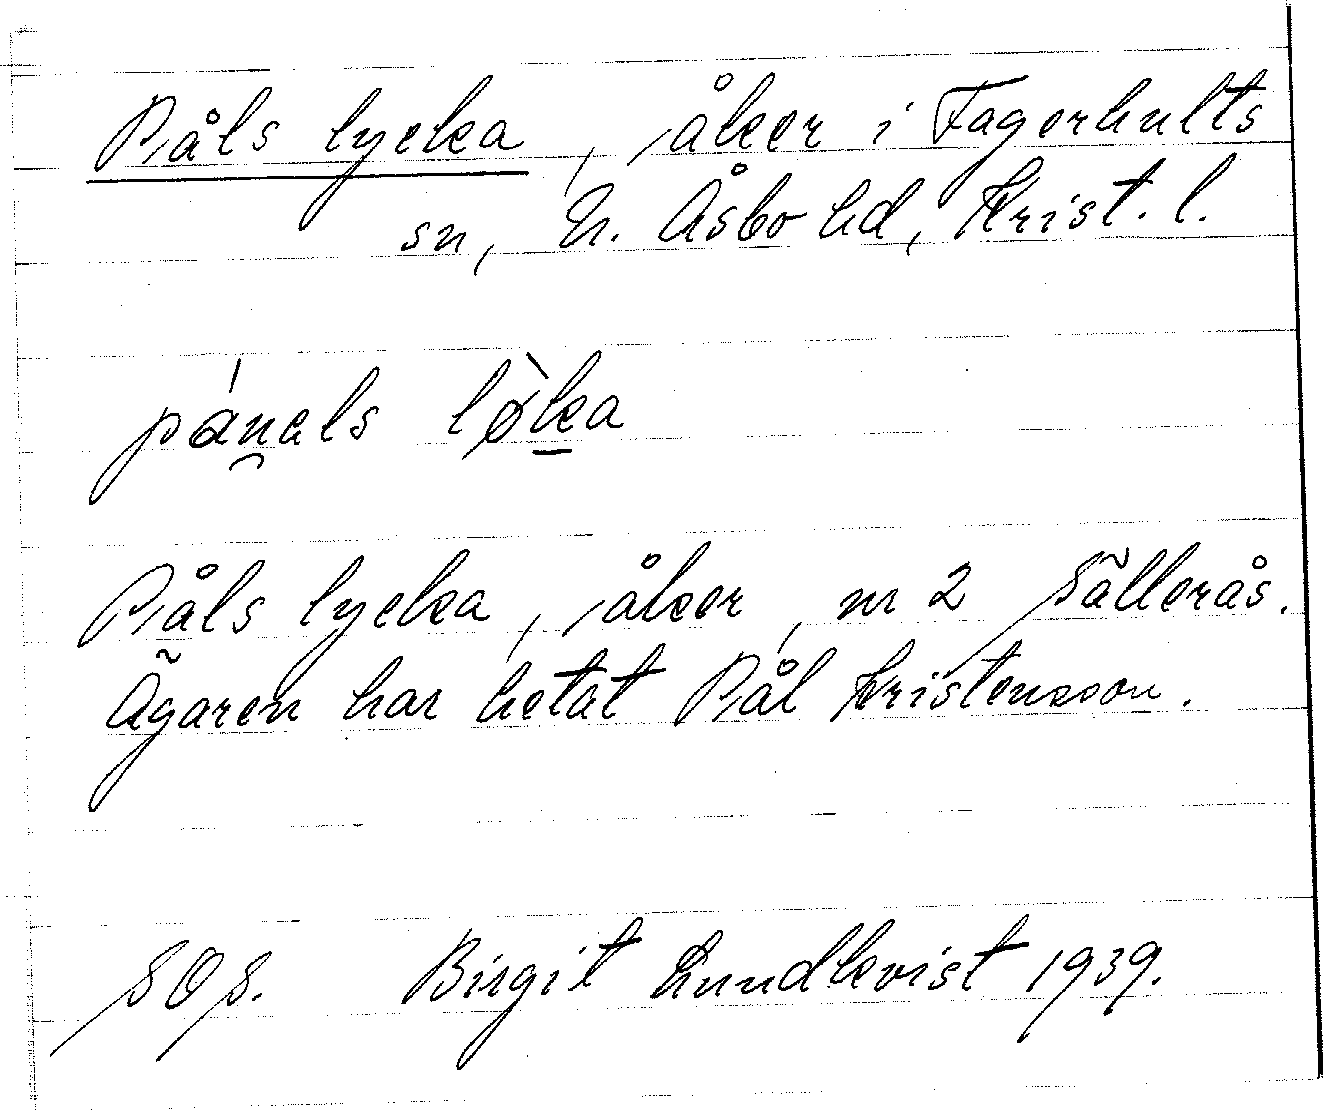 Påls lycka, åker i Fagerhults
sn, N. Åsbo hd, Krist. l.
Påls lycka, åker, nr 2 Sällerås.
Ägaren har hetat Pål Kristensson.
SOS. Birgit Lundkvist 1939.